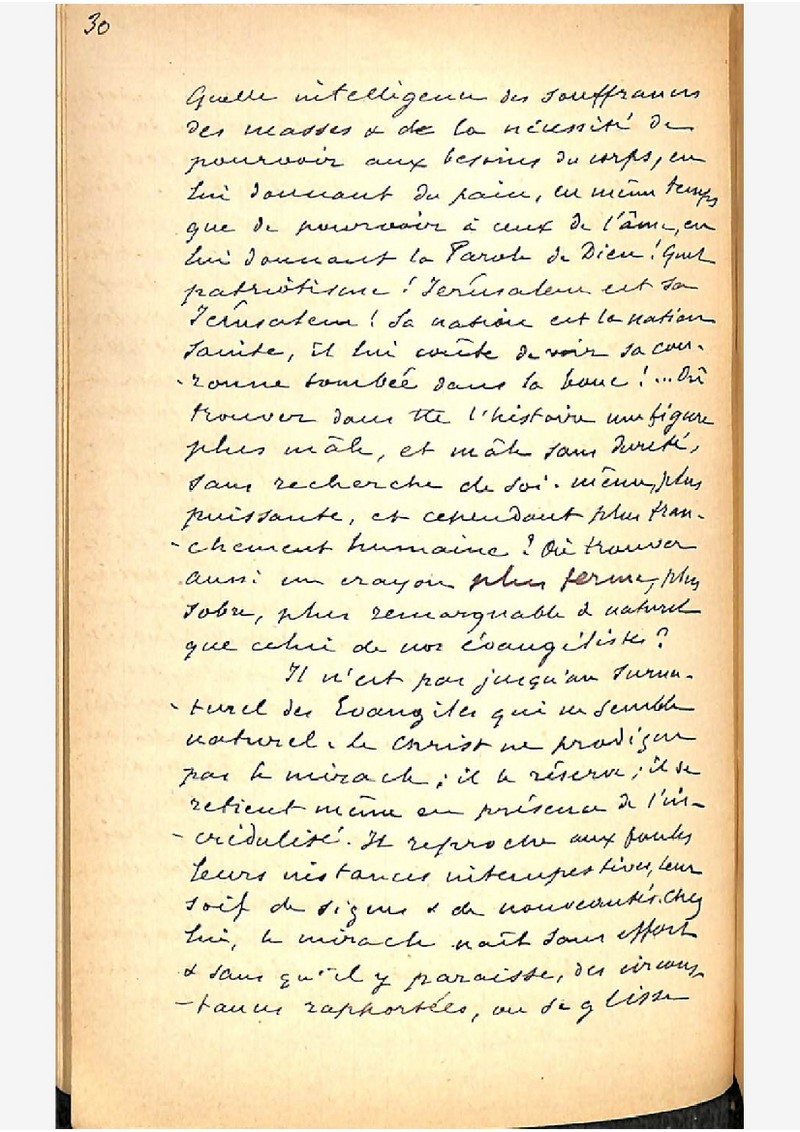 30
Quelle intelligence des souffrances
des masses & de la nécessité de
pourvoir aux besoins du corps, en
lui donnant du pain, en même temps
que de pourvoir à ceux de l'âme, en
lui donnant la Parole de Dieu ! Quel
patriotisme ! Jérusalem est sa
Jérusalem ! Sa nation est la nation
sainte, il lui coûte de voir sa cou-
-ronne tombée dans la boue ! ... Où
trouver dans tte l'histoire une figure
plus mâle, et mâle sans dureté,
sans recherche de soi-même, plus
puissante, et cependant plus fran-
-chement humaine ? Où trouver
aussi un crayon plus ferme, plus
sobre, plus remarquable & naturel
que celui de nos évangélistes ?
Il n'est pas jusqu'au surna-
-turel des Evangiles qui ne semble
naturel. Le Christ ne prodigue
pas le miracle ; il le réserve ; il se
retient même en présence de l'in-
-crédulité. Il reproche aux foules
leurs instances intempestives, leur
soif de signes & de nouveautés. Chez
lui, le miracle naît sans effort
& sans qu'il y paraisse, des circons-
-tances rapportées, ou se glisse